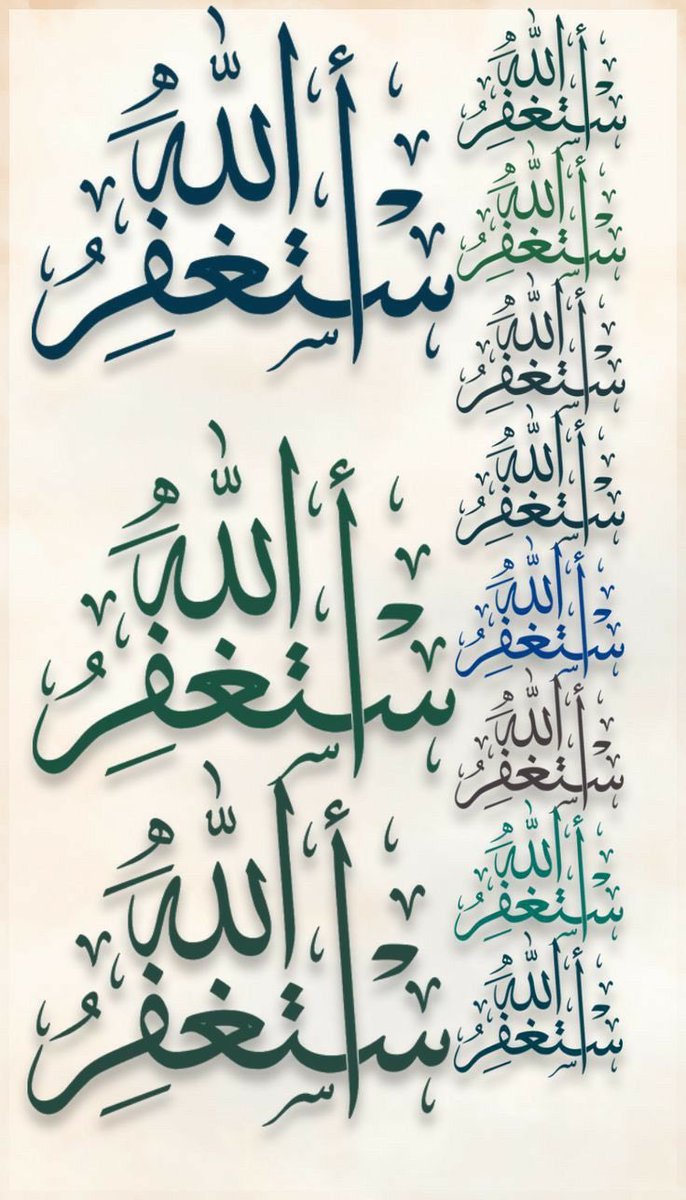 أستغفر الله
أستغفر الله
أستغفر الله
أستغفر الله
أستغفر الله
أستغفر الله
أستغفر الله
أستغفر الله
أستغفر الله
أستغفر الله
أستغفر الله